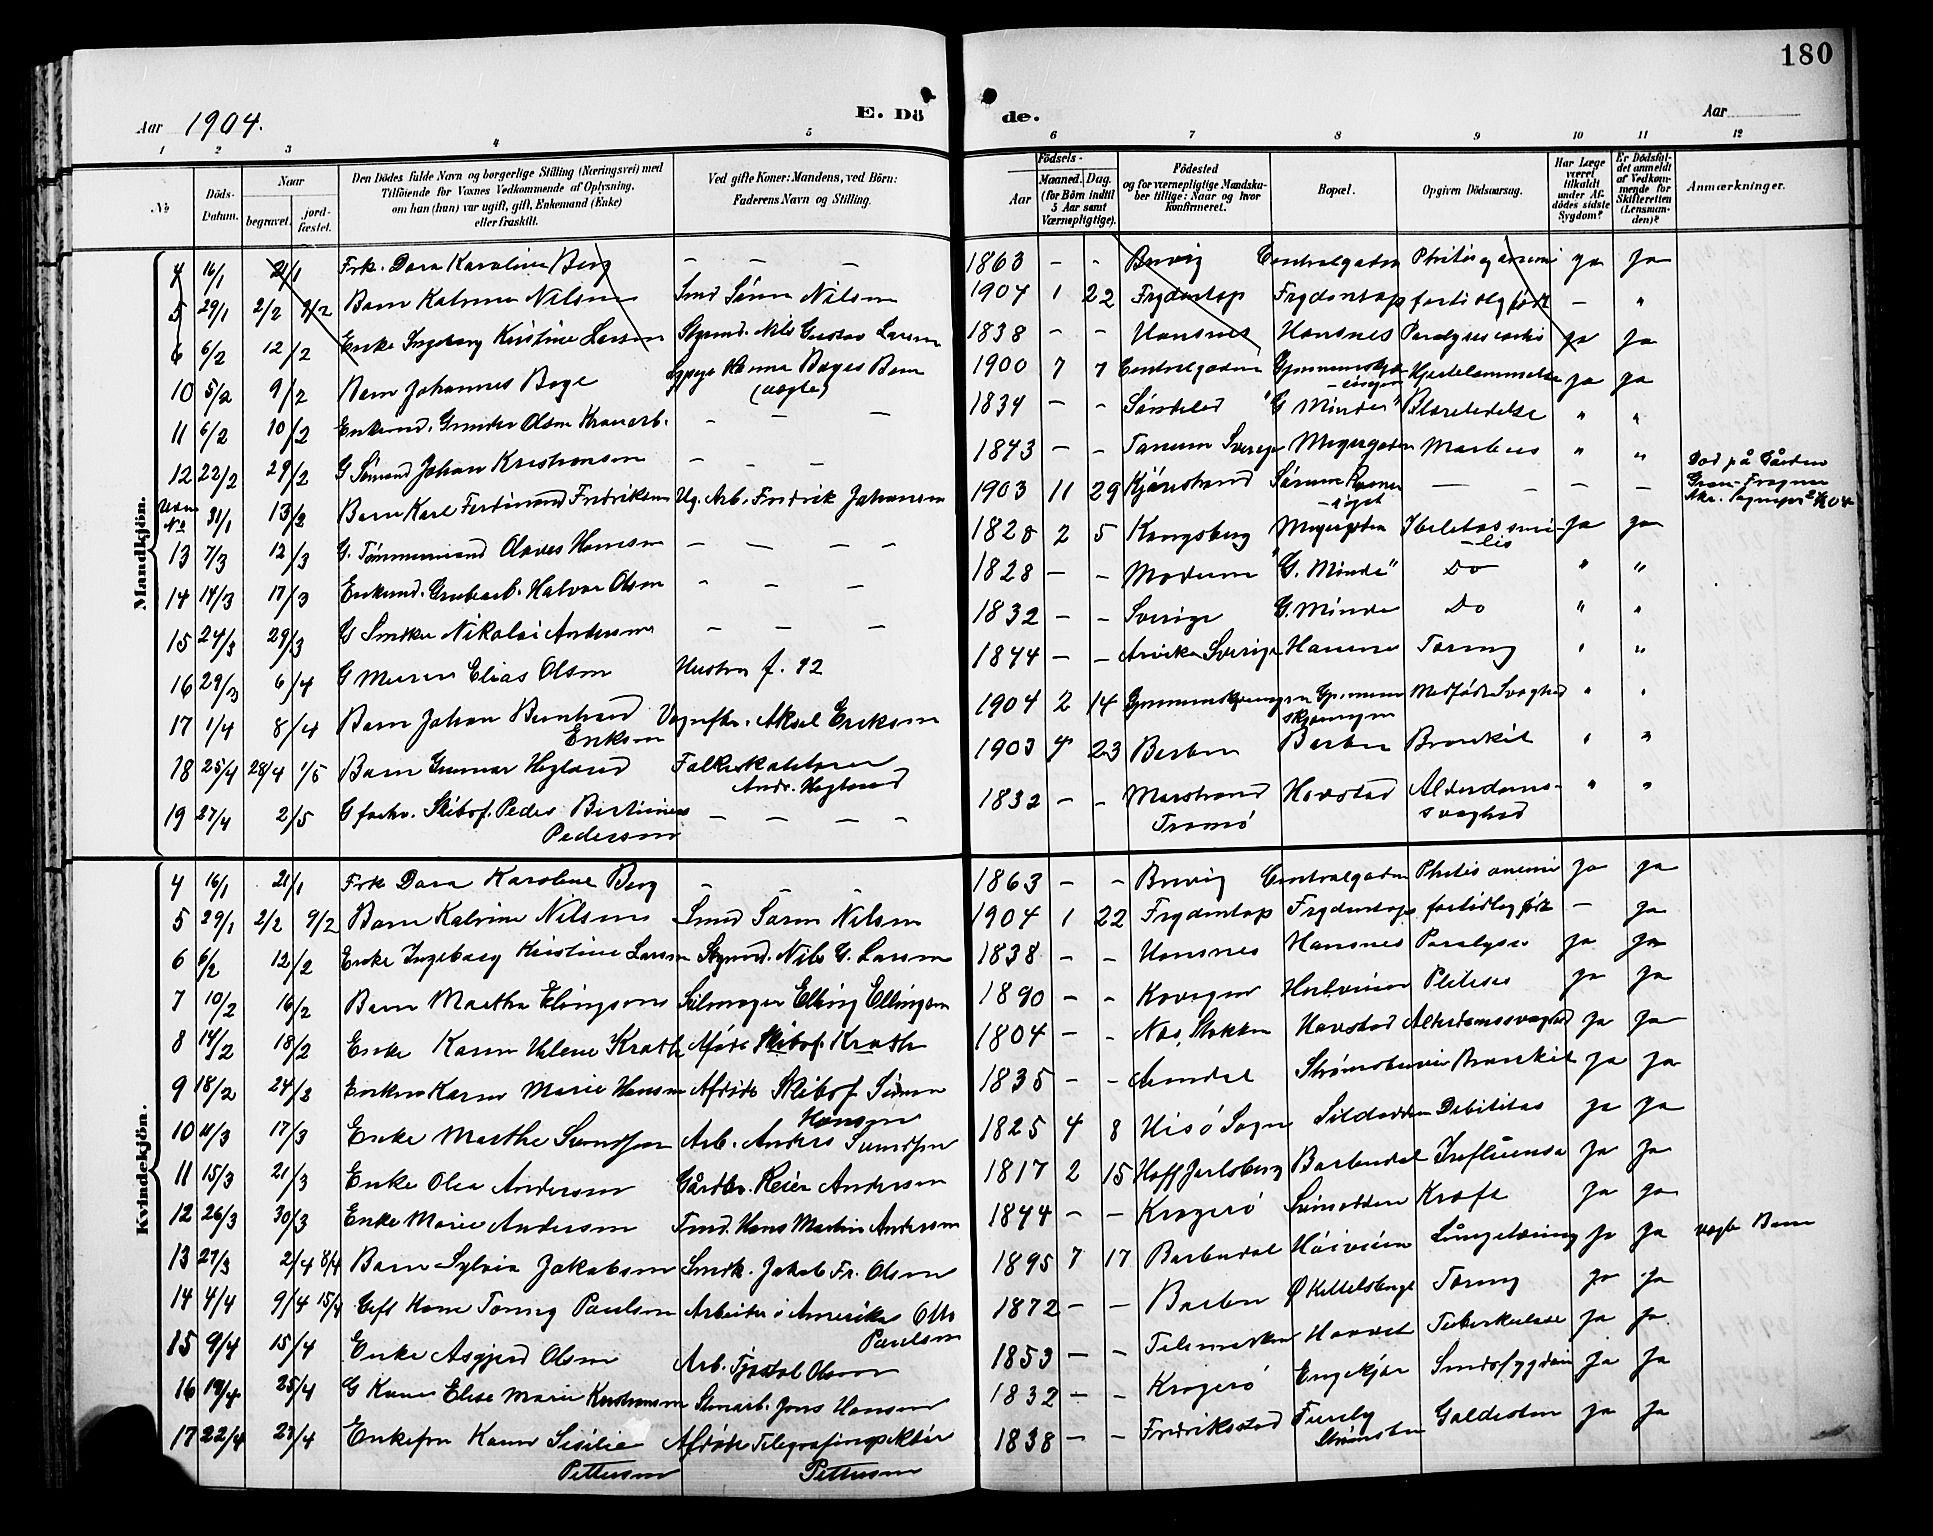 180
Aar 1904.
E. Dö
de.
Aar
1 2 3 4 5 6 7 8 9 10 11 12
No
Döds-
Datum.
Naar
begravet.
jord-
fæstet.
Den Dödes fulde Navn og borgerlige Stilling (Næringsvei) med
Tilföiende for Voxnes Vedkommende af Oplysning,
om han (hun) var ugift, gift, Enkemand (Enke)
eller fraskilt.
Ved gifte Koner: Mandens, ved Börn:
Faderens Navn og Stilling.
Födsels-
Aar
Maaned. Dag.
(for Börn indtil
5 Aar samt
Værnepligtige).
Födested
og for værnepligtige Mandska-
ber tillige: Naar og hvor
konfirmeret.
Bopæl.
Opgiven Dödsaarsag.
Har Læge
været
tilkaldt
under Af-
dödes sidste
Sygdom?
Er Dödsfal-
det anmeldt
af Vedkom-
mende for
Skifteretten
(Lensman-
den)?
Anmærkninger.
Mandkjön.
4 16/1 21/1 Frk. Dora Karoline Berg — — — 1863 - - Brevig Centralgaden Phtisis og anemi ja ja
5 29/1 2/2 9/2 Barn Katrine Nilsen Smed Sören Nilsen 1904 1 22 Frydentop Frydentop fortidlig födt - "
6 6/2 12/2 Enke Ingeborg Kristine Larsen Styrmd. Nils Gustav Larsen 1838 - - Hansnes Hansnes Paralysis cordis ja ja
10 5/2 9/2 Barn Johannes Boge Hanna Boges Barn
(uægte) 1900 7 7 Centralgaden Hjertelammelse ja ja
11 6/2 10/2 Enkemd. Gunder Olsen Kranarb. - - - 1834 - - Söndeled "G. Minde" Blæreledelse " "
12 22/2 29/2 G Sömand Johan Kristiansen - - - 1843 - - Tanum Sverige Meyergaden " "
Uden
No 31/1 13/2 Barn Karl Ferdinand Fredriksen Ug. Arb. Fredrik Johansen 1903 11 29 Kjörestrand — - - -
Död på Gården
13 7/3 12/3 G. Tömmermand Olaves Hansen - - - - 1828 2 5 Kongsberg Meyergaden ja ja
14 14/3 17/3 Enkemd. Grubearb. Halvor Olsen - - - 1828 - - Modum "G. Minde" Do " "
15 24/3 29/3 G Snedker Nikolai Andersen - - - 1832 - - Sverige G. Minde Do " "
16 29/3 6/4 G Murer Elias Olsen Hustru f. 42 1844 - - Arvika Sverige Tæring " "
17 1/4 8/4 Barn Johan Bernhard
Eriksen Vognfbr. Aksel Eriksen 1904 2 14 Medfödt Svaghed " "
18 25/4 28/4 1/5 Barn Gunnar Hegland
Andr. Hegland 1903 4 23 Barbu Barbu Bronkit " "
19 27/4 2/5 G forhv. Skibsf. Peder Bertinius
Pedersen - - - - 1832 - - Marstrand
Tromö Havstad Alderdoms-
svaghed " "
Kvindekjön.
4 16/1 21/1 Frk Dora Karoline Berg - - - 1863 - - Brevig Centralgaden Phtisis anemi ja ja
5 29/1 2/2 9/2 Barn Katrine Nilsen Smed Sören Nilsen 1904 1 22 Frydentop Frydentop fortidlig föd - ja
6 6/2 12/2 Enke Ingeborg Kristine Larsen Styrmd. Nils G. Larsen 1838 - - Hansnes Hansnes Paralyse ja ja
7 10/2 16/2 Barn Martha Elingsen Seilmager Elling Ellingsen 1890 - - Phtisis ja ja
8 14/2 18/2 Enke Karen Helene Kroth Afdöde Skibsf. Kroth 1804 - - Næs, Stokken Havstad Alderdomssvaghed ja ja
9 18/2 24/2 Enken Karen Marie Hansen Afdöde Skibsf Sören
Hansen 1835 - - Arendal Strömsbuveien Bronkit ja ja
10 11/3 17/3 Enke Marthe Svendsen Arb. Anders Svendsen 1825 4 8 Hisö Sogn Sildodden Debilitas ja ja
11 15/3 21/3 Enke Olea Andersen Gårdbr. Reier Andersen 1817 2 15 Hoff Jarlsberg Barbudal Influensa ja ja
12 26/3 30/3 Enke Marie Andersen Hans Martin Andersen 1844 - - Kragerö Kræft ja ja
13 27/3 2/4 8/4 Barn Sylvia Jakobsen Snedk. Jakob Fr. Olsen 1895 7 17 Barbudal Höiveien Lungetæring ja ja uægte Barn
14 4/4 9/4 15/4 Gift Kone Tonny Paulsen Arbeider i Amerika Otto
Paulsen 1872 - - Barbu Ø Kittelsbugt Tæring ja ja
15 9/4 15/4 Enke Asgjerd Olsen Arb. Tjostol Olsen 1853 - - Telemarken Tuberkulose ja ja
16 19/4 25/4 G Kone Elise Marie Kristiansen Stenarb. Jens Hansen 1832 - - Kragerö Engekjær ja ja
17 22/4 27/4 Enkefru Karen Sesilie
Pettersen Afdöde Telegrafinspektör
Pettersen 1838 - - Fredriksstad Furuly
Strömsbu Galdesten ja ja